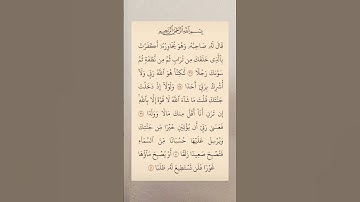 بِسْمِ اللَّهِ الرَّحْمَٰنِ الرَّحِيمِ
قَالَ لَهُ صَاحِبُهُ وَهُوَ يُحَاوِرُهُ أَكَفَرْتَ
بِالَّذِي خَلَقَكَ مِن تُرَابٍ ثُمَّ مِن نُّطْفَةٍ ثُمَّ
سَوَّاكَ رَجُلًا ۝ لَّٰكِنَّا هُوَ اللَّهُ رَبِّي وَلَا
أُشْرِكُ بِرَبِّي أَحَدًا ۝ وَلَوْلَا إِذْ دَخَلْتَ
جَنَّتَكَ قُلْتَ مَا شَاءَ اللَّهُ لَا قُوَّةَ إِلَّا بِاللَّهِ
إِن تَرَنِ أَنَا أَقَلَّ مِنكَ مَالًا وَوَلَدًا ۝
فَعَسَىٰ رَبِّي أَن يُؤْتِيَنِ خَيْرًا مِّن جَنَّتِكَ
وَيُرْسِلَ عَلَيْهَا حُسْبَانًا مِّنَ السَّمَاءِ
فَتُصْبِحَ صَعِيدًا زَلَقًا ۝ أَوْ يُصْبِحَ مَاؤُهَا
غَوْرًا فَلَن تَسْتَطِيعَ لَهُ طَلَبًا ۝